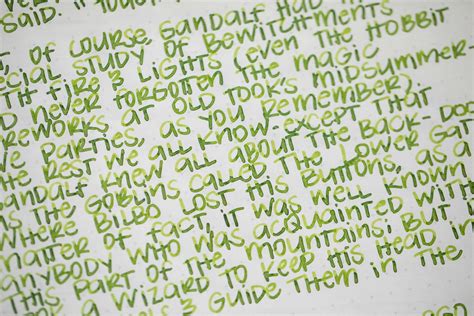 OF COURSE, GANDALF HAD
ECIAL STUDY OF BEWITCHMENTS
TH FIRE & LIGHTS (EVEN THE HOBBIT
D NEVER FORGOTTEN THE MAGIC
REWORKS AT OLD TOOK'S MIDSUMMER
VE PARTIES, AS YOU REMEMBER)
THE REST WE ALL KNOW-EXCEPT THAT
ANDALF KNEW ALL ABOUT THE BACK-DOO
THE GOBLINS CALLED THE LOWER GAT
WHERE BILBO LOST HIS BUTTONS, AS
MATTER OF FACT, IT WAS WELL KNOWN
ANYBODY WHO WAS ACQUAINTED WITH
THIS PART OF THE MOUNTAINS; BUT I
A WIZARD TO KEEP HIS HEAD IN
GUIDE THEM IN THE